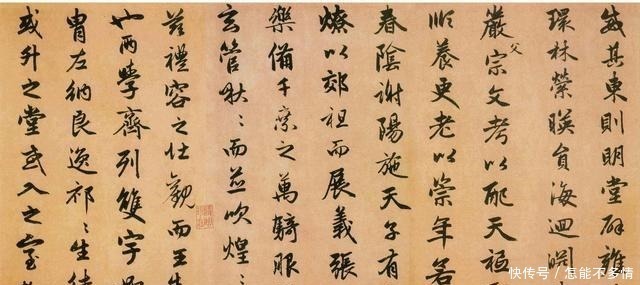 其東則明堂辟雍
環林縈暎員海迴淵
嚴父宗文考以配天祗
順養更老以崇年若
春陰謝陽施天子有
燎以郊祖而展義張
樂備千乗之萬騎服
玄管啾〻而並吹煌〻
茲禮容之壯觀而王制
也兩學齊列雙宇如
胄左納良逸祁〻生徒
或升之堂或入之室
快传号/怎能不多情